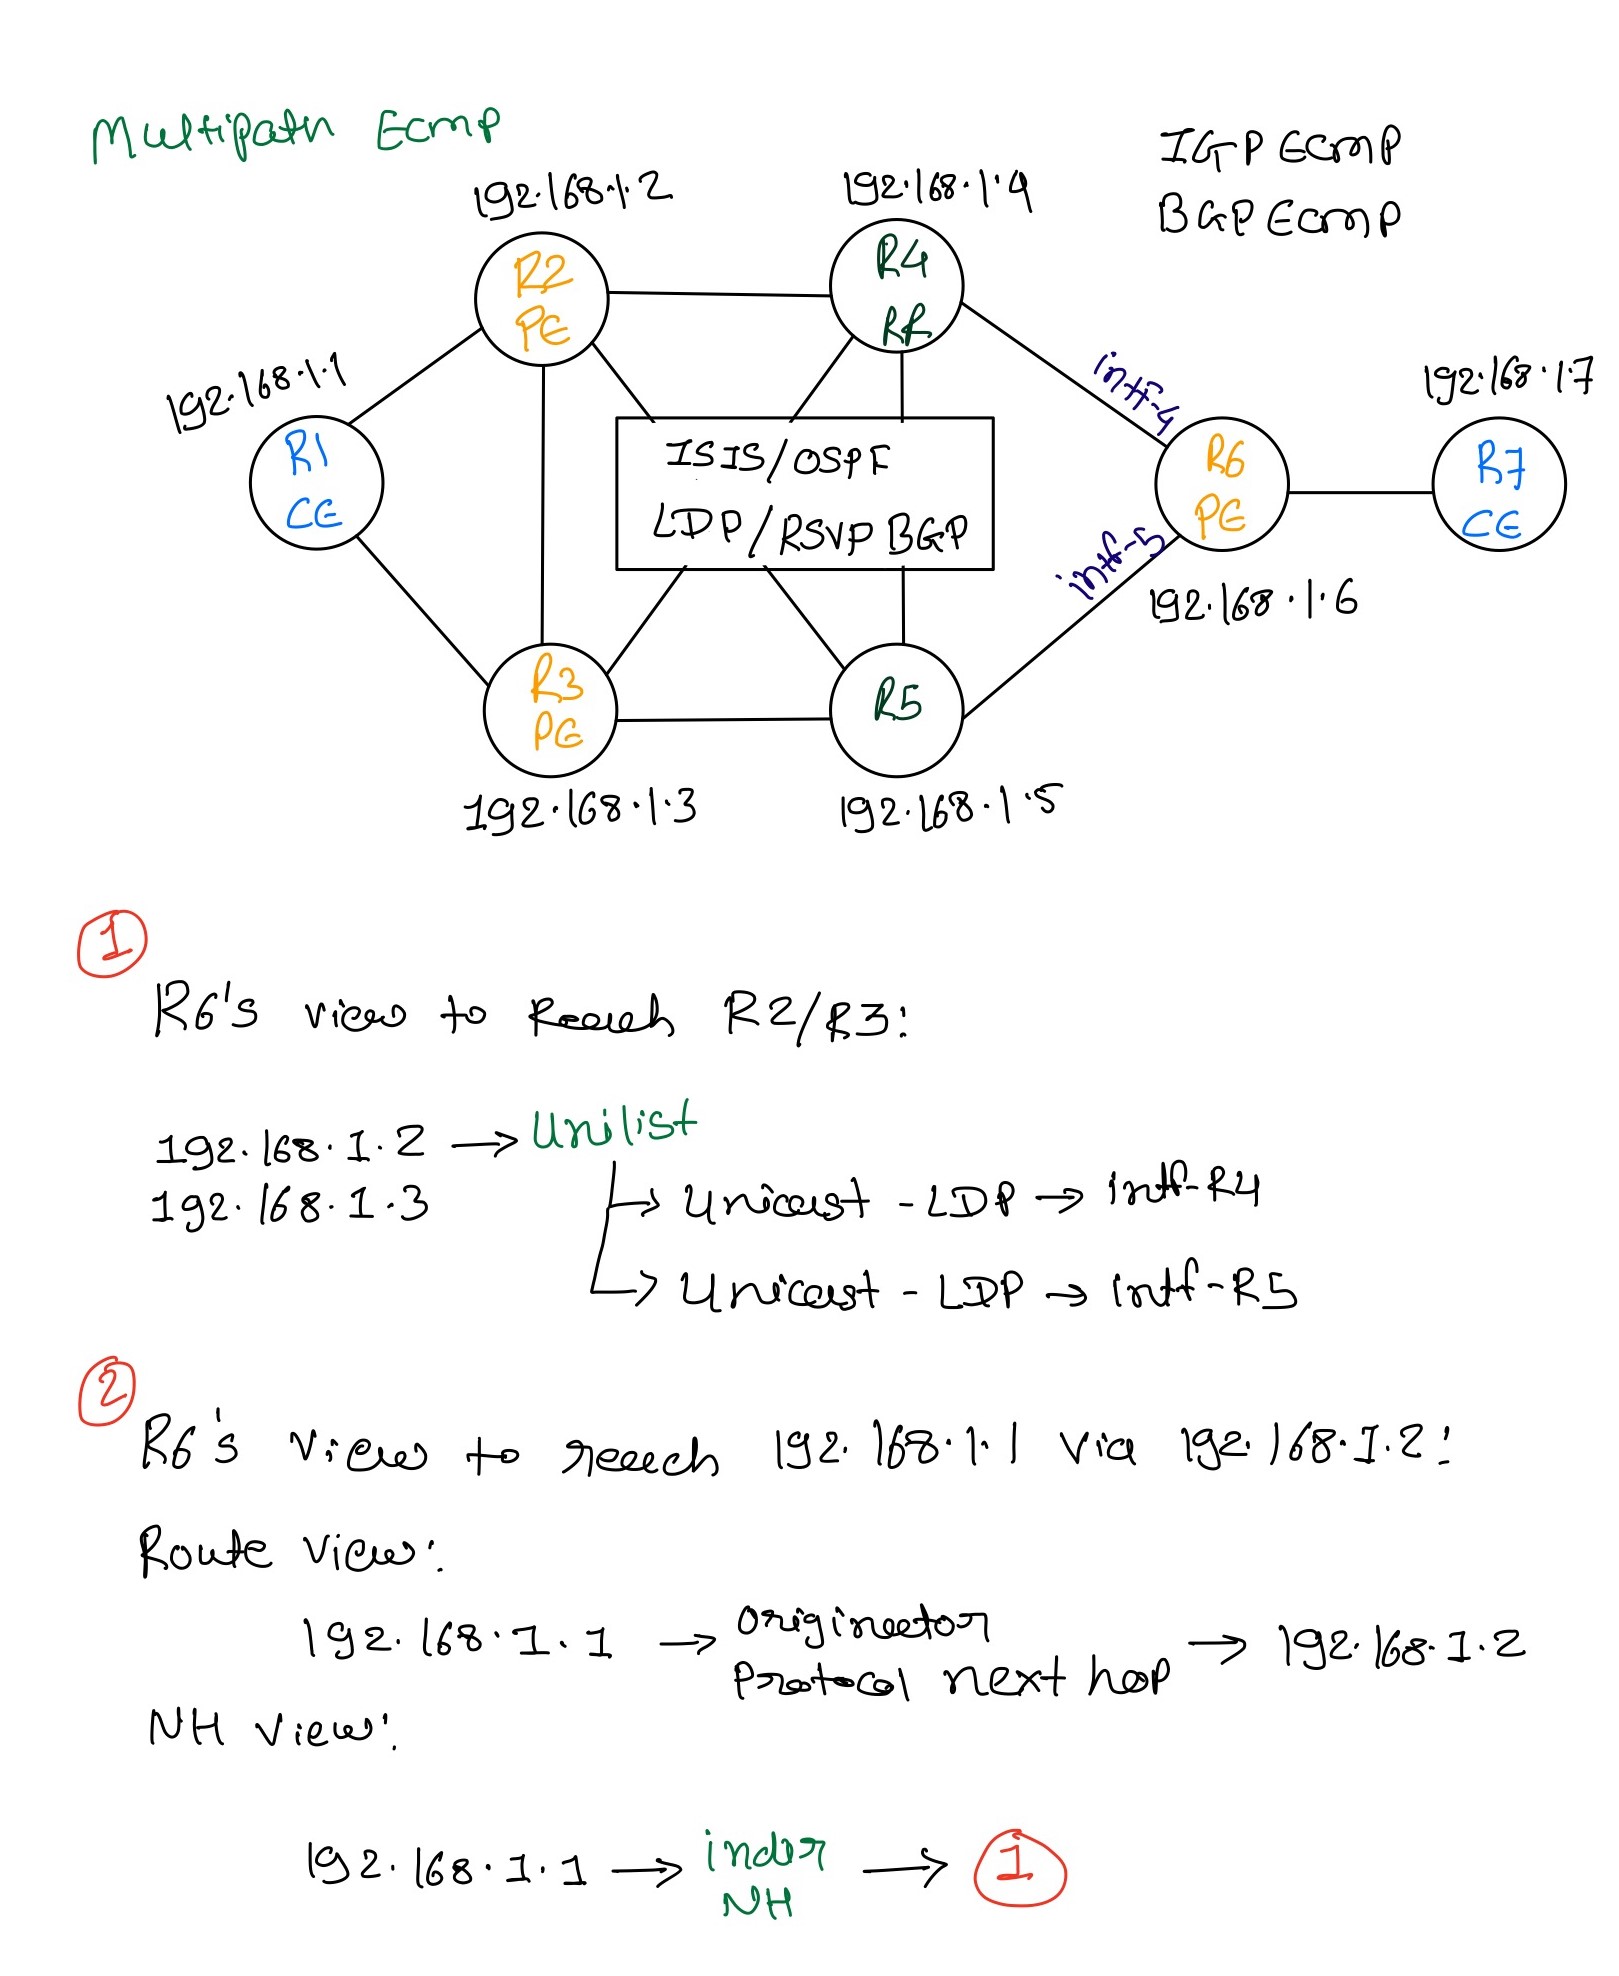 Multipath Ecmp
IGP Ecmp
BGP Ecmp
192.168.1.2
192.168.1.4
R2
PE
R4
RR
192.168.1.1
intf-4
192.168.1.7
R1
CE
ISIS/OSPF
LDP/RSVP BGP
R6
PE
R7
CE
intf-5
192.168.1.6
R3
PE
R5
192.168.1.3
192.168.1.5
1
R6's view to Reach R2/R3:
192.168.1.2 → Unilist
192.168.1.3
Unicast - LDP → intf-R4
Unicast - LDP → intf-R5
2
R6's view to reach 192.168.1.1 via 192.168.1.2:
Route view:
192.168.1.1 → originator Protocol next hop → 192.168.1.2
NH view:
192.168.1.1 → indr NH → 1